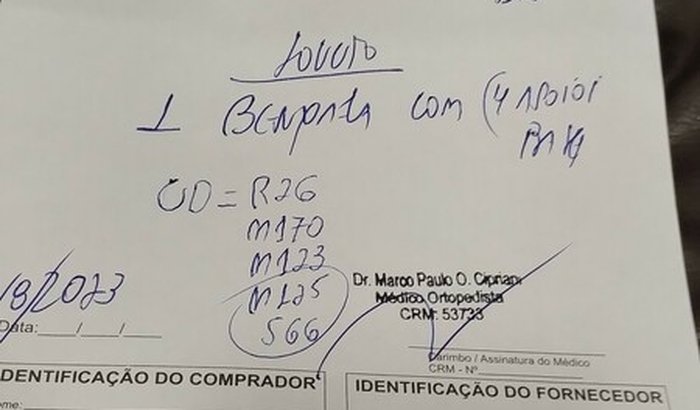 1 Bengala com (4 apoios
CID = R26
M170
M123
M125
S66
/2023
Data:___/___/___
Dr. Marco Paulo O. Cipriani
Médico Ortopedista
CRM: 53733
Carimbo / Assinatura do Médico
CRM - Nº
DENTIFICAÇÃO DO COMPRADOR
IDENTIFICAÇÃO DO FORNECEDOR
ome: